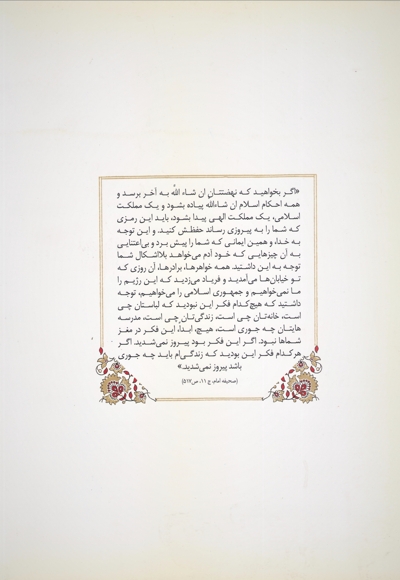 «اگر بخواهید که نهضتتان ان شاء الله به آخر برسد و
همه احکام اسلام ان شاءالله پیاده بشود و یک مملکت
اسلامی، یک مملکت الهی پیدا بشود، باید این رمزی
که شما را به پیروزی رساند حفظش کنید. و این توجه
به خدا، و همین ایمانی که شما را پیش برد و بی‌اعتنایی
به آن چیزهایی که خود آدم می‌خواهد بلااشکال شما
توجه به این داشتید. همه خواهرها، برادرها، آن روزی که
تو خیابان‌ها می‌آمدید و فریاد می‌زدید که این رژیم را
ما نمی‌خواهیم و جمهوری اسلامی را می‌خواهیم، توجه
داشتید که هیچ‌کدام فکر این نبودید که لباستان چی
است، خانه‌تان چی است، زندگی‌تان چی است، مدرسه
هایتان چه جوری است، هیچ، ابدا، این فکر در مغز
شماها نبود. اگر این فکر بود پیروز نمی‌شدید. اگر
هرکدام فکر این بودید که زندگی‌ام باید چه جوری
باشد پیروز نمی‌شدید.»
(صحیفه امام، ج ۱۱، ص ۵۱۷)